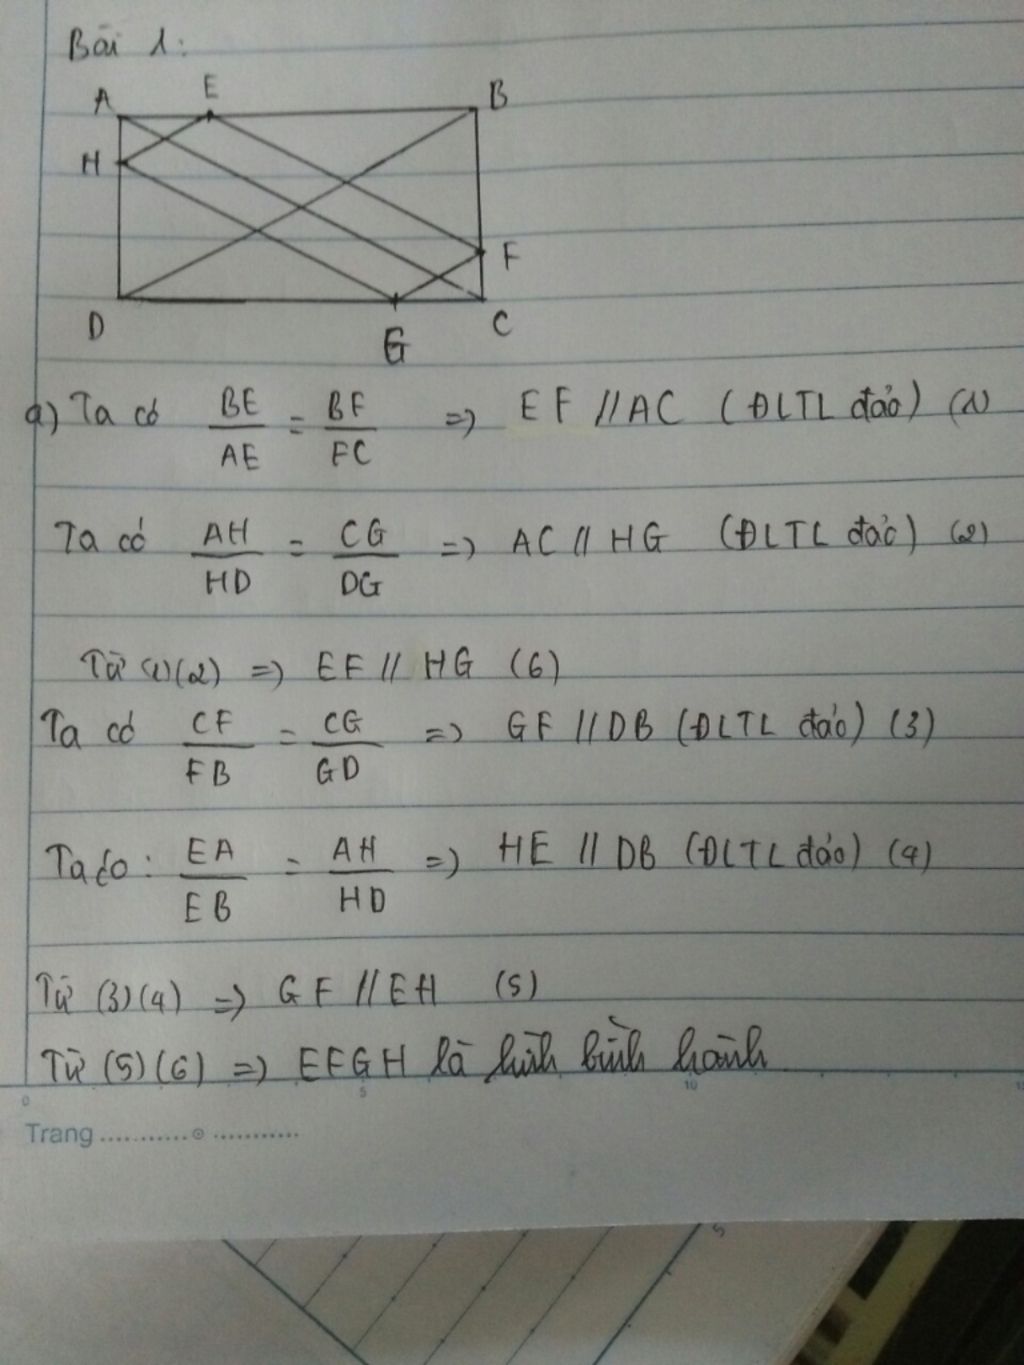 Bài 1:
A E B
H
F
D G C
a) Ta có BE/AE = BF/FC => EF // AC (ĐLTL đảo) (1)
Ta có AH/HD = CG/DG => AC // HG (ĐLTL đảo) (2)
Từ (1)(2) => EF // HG (6)
Ta có CF/FB = CG/GD => GF // DB (ĐLTL đảo) (3)
Ta có: EA/EB = AH/HD => HE // DB (ĐLTL đảo) (4)
Từ (3)(4) => GF // EH (5)
Từ (5)(6) => EFGH là hình bình hành
0 5 10
Trang ........... ...........
5